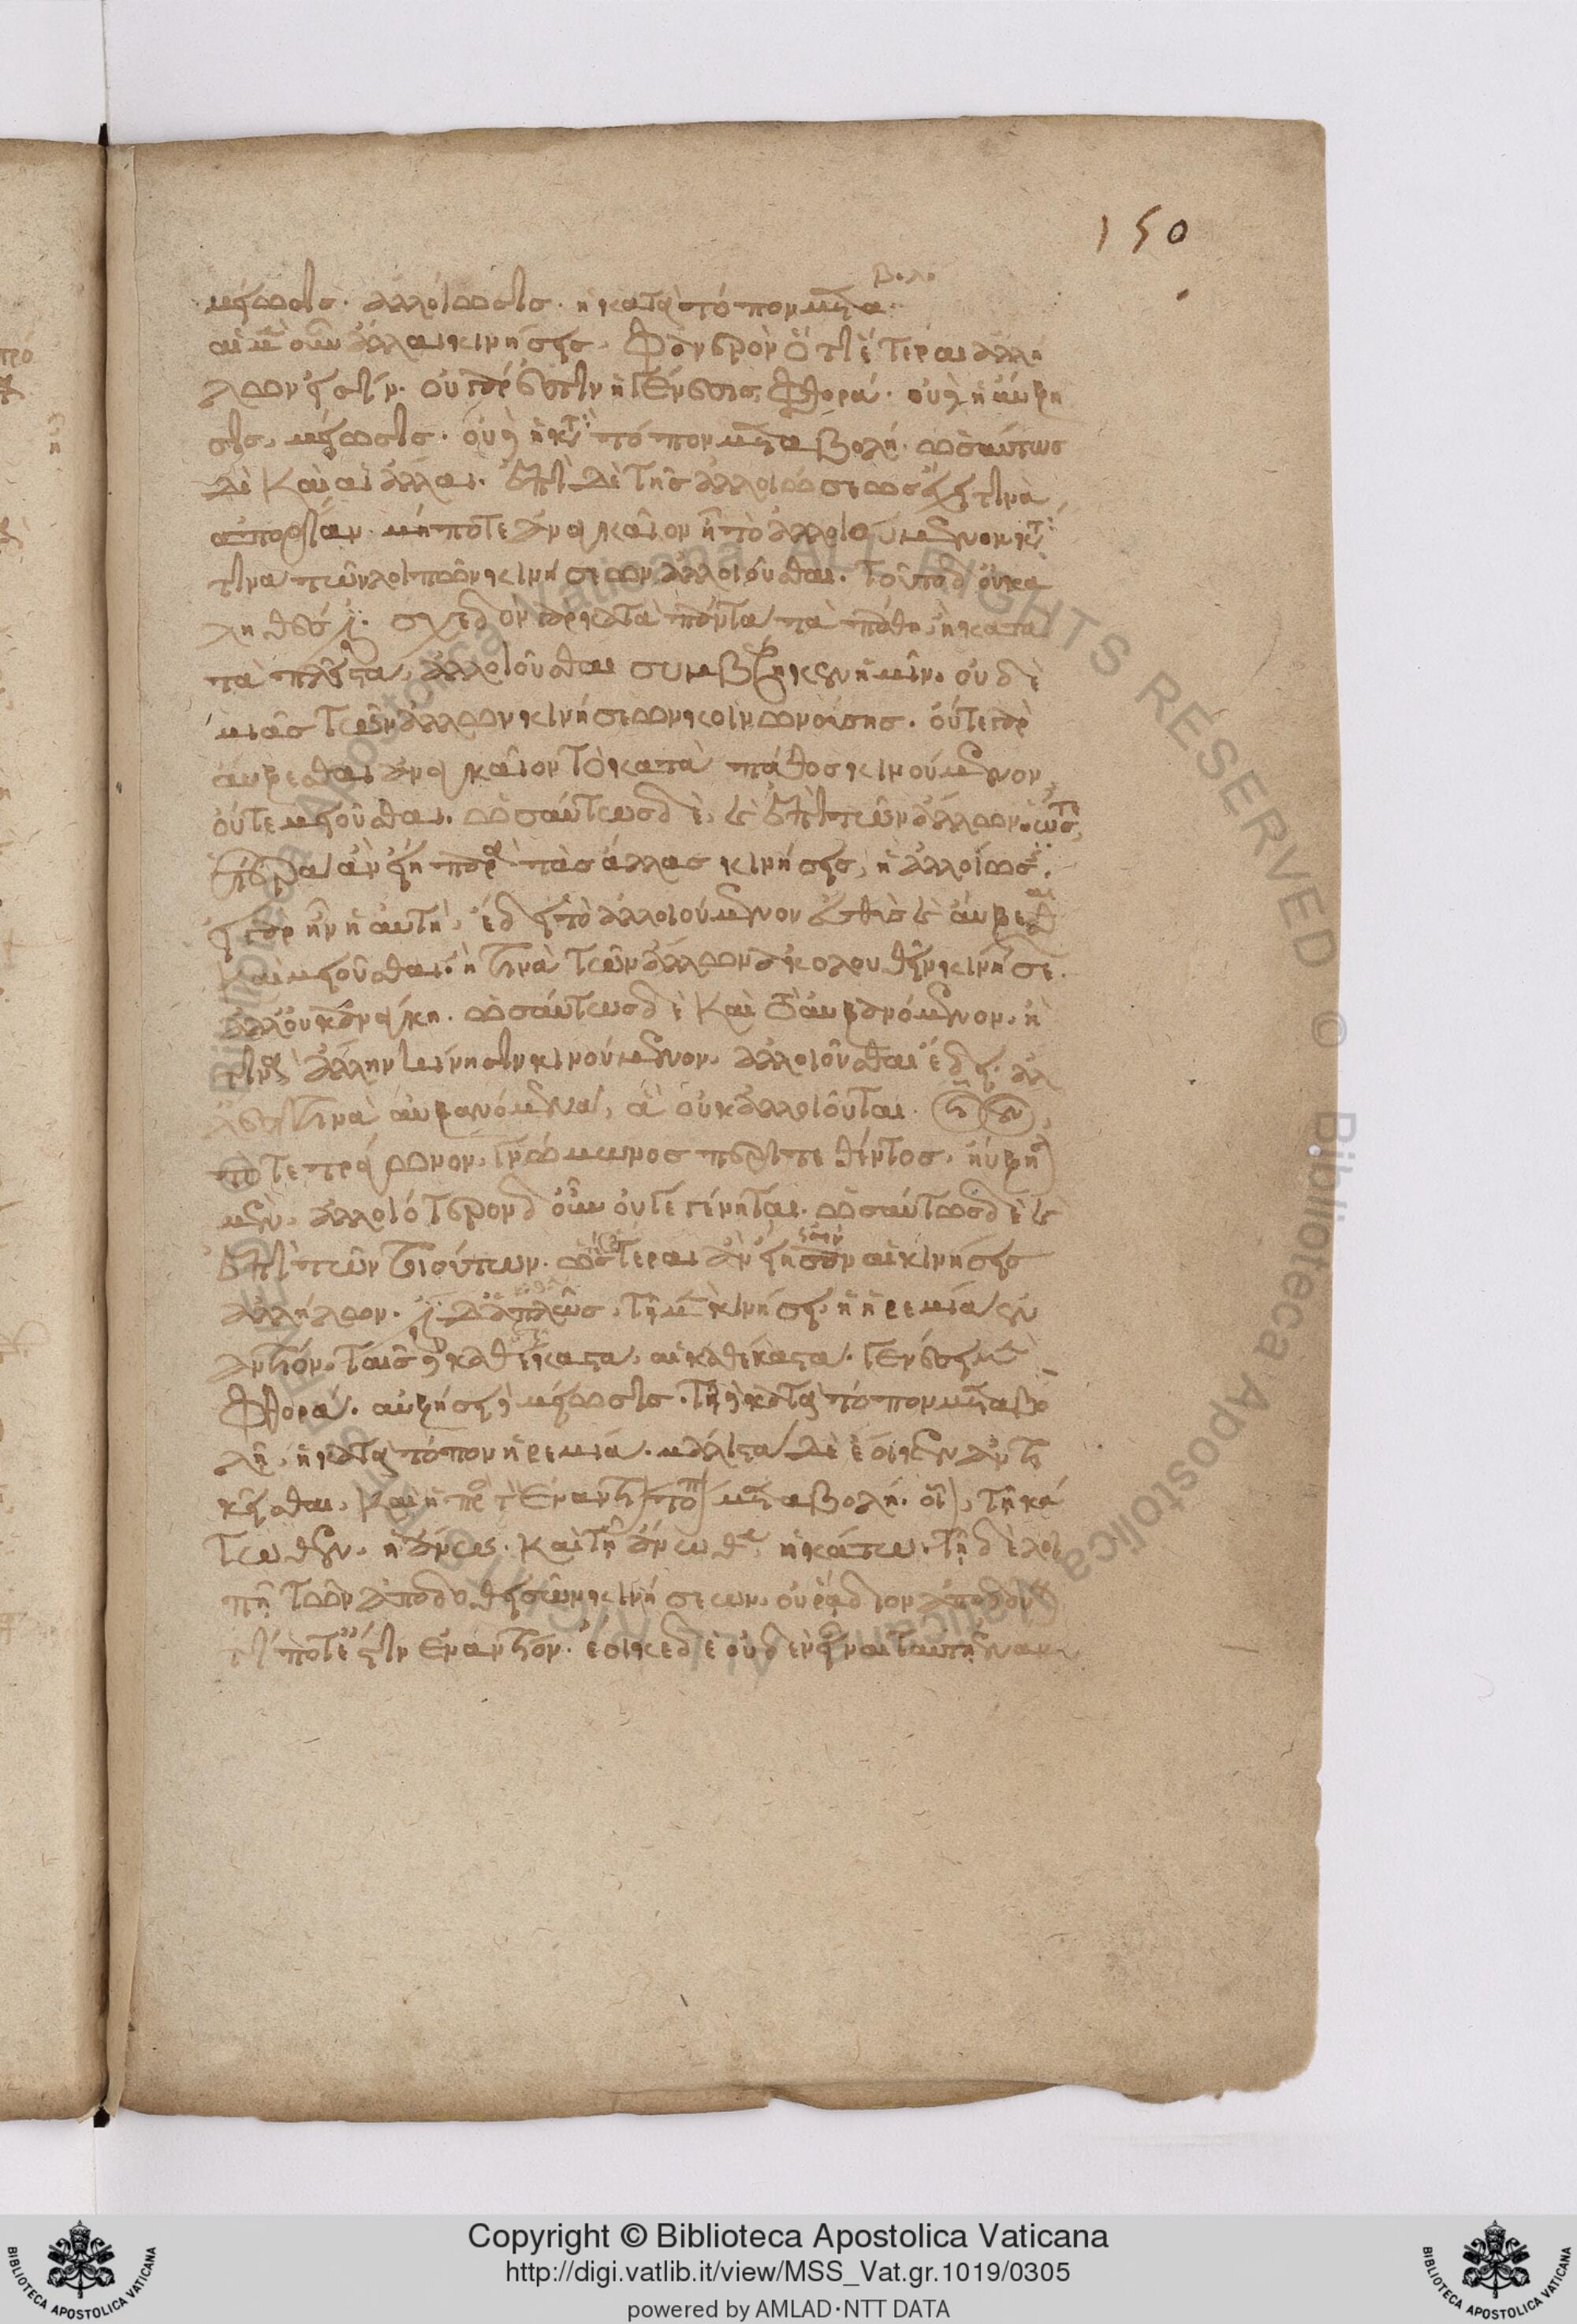 150
μείωσις. ἀλλοίωσις. ἡ κατὰ τόπον μεταβολή
αἱ μὲν οὖν ἄλλαι κινήσεις, φανερὸν ὅτι ἕτεραι ἀλλή
λων εἰσίν. οὐ γάρ ἐστιν ἡ γένεσις, φθορά. οὐδὲ ἡ αὔξη
σις, μείωσις. οὐδὲ ἡ κατὰ τόπον μεταβολή. ὡσαύτως
δὲ καὶ αἱ ἄλλαι. ἐπὶ δὲ τῆς ἀλλοιώσεως ἔχει τινὰ
ἀπορίαν. μήποτε ἀναγκαῖον ᾖ τὸ ἀλλοιούμενον κατά
τινα τῶν λοιπῶν κινήσεων ἀλλοιοῦσθαι. τοῦτο δ' οὐκ ἀ
ληθές ἐστι. σχεδὸν γὰρ κατὰ πάντα τὰ πάθη, ἢ κατὰ
τὰ πλεῖστα, ἀλλοιοῦσθαι συμβέβηκεν ἡμῖν. οὐδε
μιᾶς τῶν ἄλλων κινήσεων κοινωνούσης. οὔτε γὰρ
αὔξεσθαι ἀναγκαῖον τὸ κατὰ πάθος κινούμενον,
οὔτε μειοῦσθαι. ὡσαύτως δὲ καὶ ἐπὶ τῶν ἄλλων. ὥστε
ἑτέρα ἂν εἴη παρὰ τὰς ἄλλας κινήσεις, ἡ ἀλλοίωσις.
εἰ γὰρ ἦν ἡ αὐτή, ἔδει τὸ ἀλλοιούμενον εὐθὺς καὶ αὔξεσθαι
καὶ μειοῦσθαι. ἤ τινα τῶν ἄλλων ἀκολουθεῖν κινήσε.
ἀλλ' οὐκ ἀνάγκη. ὡσαύτως δὲ καὶ τὸ αὐξανόμενον, ἤ
τινα ἄλλην κίνησιν κινούμενον. ἀλλοιοῦσθαι ἔδει. ἀλ
λ' ἔστι τινὰ αὐξανόμενα, ἃ οὐκ ἀλλοιοῦται. οἷον,
τὸ τετράγωνον, γνώμωνος περιτεθέντος. ηὔξηται
μέν. ἀλλοιότερον δ' οὖν οὔτε γένηται. ὡσαύτως δὲ καὶ
ἐπὶ τῶν τοιούτων. ὥσθ' ἕτεραι ἂν εἴησαν αἱ κινήσεις
ἀλλήλων. ἔστι δὲ ἁπλῶς, τῇ μὲν κινήσει, ἡ ἠρεμία ἐν
αντίον. ταῖς δὲ καθ' ἕκαστα, αἱ καθ' ἕκαστα. γενέσει μὲν
φθορά. αὐξήσει δὲ μείωσις. τῇ δὲ κατὰ τόπον μεταβο
λῇ, ἡ κατὰ τόπον ἠρεμία. μάλιστα δὲ ἔοικεν ἀντι
κεῖσθαι, καὶ ἡ πρὸς τὸν ἐναντίον τόπον μεταβολή. οἷον, τῇ κά
τωθεν, ἡ ἄνω. καὶ τῇ ἄνωθεν, ἡ κάτω. τῇ δὲ λοι
πῇ τῶν ἀποδοθεισῶν κινήσεων, οὐ ῥᾴδιον ἀποδοῦναι
τί ποτέ ἐστιν ἐναντίον. ἔοικε δὲ οὐδὲν εἶναι ταύτῃ ἐναν
Copyright © Biblioteca Apostolica Vaticana
http://digi.vatlib.it/view/MSS_Vat.gr.1019/0305
powered by AMLAD·NTT DATA